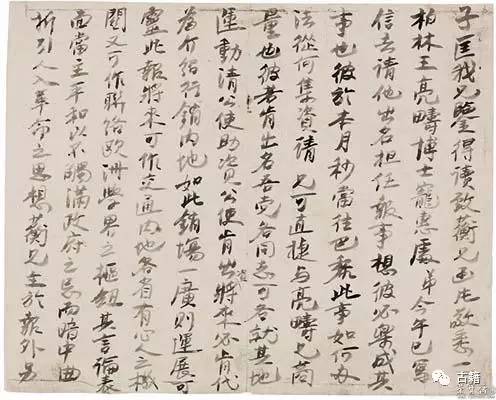 子匡我兄鑒得讀致蘅兄函敬悉
柏林王亮疇博士寵惠處弟今午已寫
信去請他出名担任報事想彼必樂成其
事也彼於本月杪當往巴黎此事如何办
法從何集資請兄可直捷与亮疇兄商
量也彼若肯出名吾党各同志可各就其地
運動清公使助資公使肯出資將來必肯代
為介紹行銷内地如此銷場一廣則運展可
靈此報將來可作交通内地各省有心人之機
關又可作聯絡欧洲學界之樞紐其言論表
面當主平和以不觸滿政府之忌而暗中曲
折引人入革命之思想蘅兄主於報外另
古籍